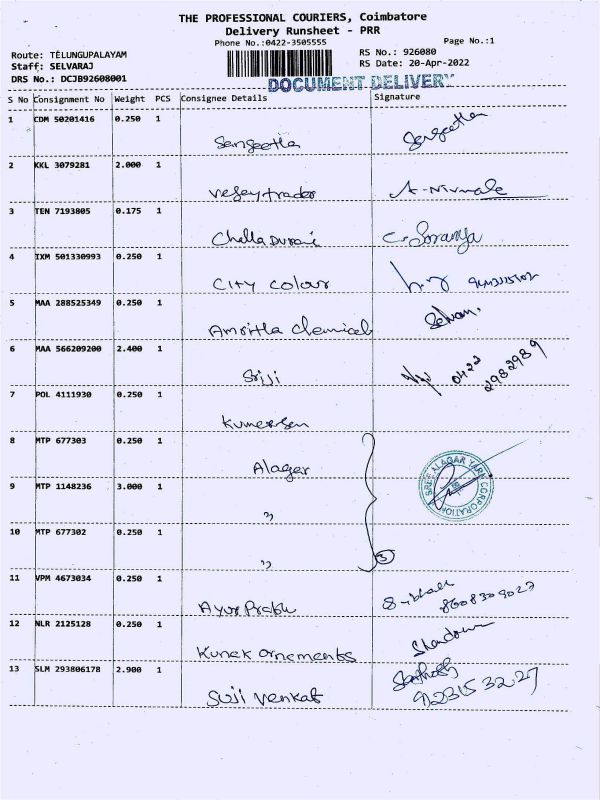 THE PROFESSIONAL COURIERS, Coimbatore
Delivery Runsheet - PRR
Phone No.:0422-3505555 Page No.:1
Route: TELUNGUPALAYAM RS No.: 926080
Staff: SELVARAJ RS Date: 20-Apr-2022
DRS No.: DCJB92608001 DOCUMENT DELIVERY
S No Consignment No Weight PCS Consignee Details Signature
1 CDM 50201416 0.250 1
Sangeetha Sangeetha
2 KKL 3079281 2.000 1
Vejaytrader A-Nirmala
3 TEN 7193805 0.175 1
Chella Durai C. Soranya
4 IXM 501330993 0.250 1
City colour
5 MAA 288525349 0.250 1
Amritha Chemicals Selvam.
6 MAA 566209200 2.400 1
Sriji 0422 2982989
7 POL 4111930 0.250 1
Kumaresan
8 MTP 677303 0.250 1
Alager SREE ALAGAR YARN CORPORATION
9 MTP 1148236 3.000 1
"
10 MTP 677302 0.250 1
" 3
11 VPM 4673034 0.250 1
Ayur Prabu
12 NLR 2125128 0.250 1
Kanak ornaments
13 SLM 293806178 2.900 1
Suji Venkat